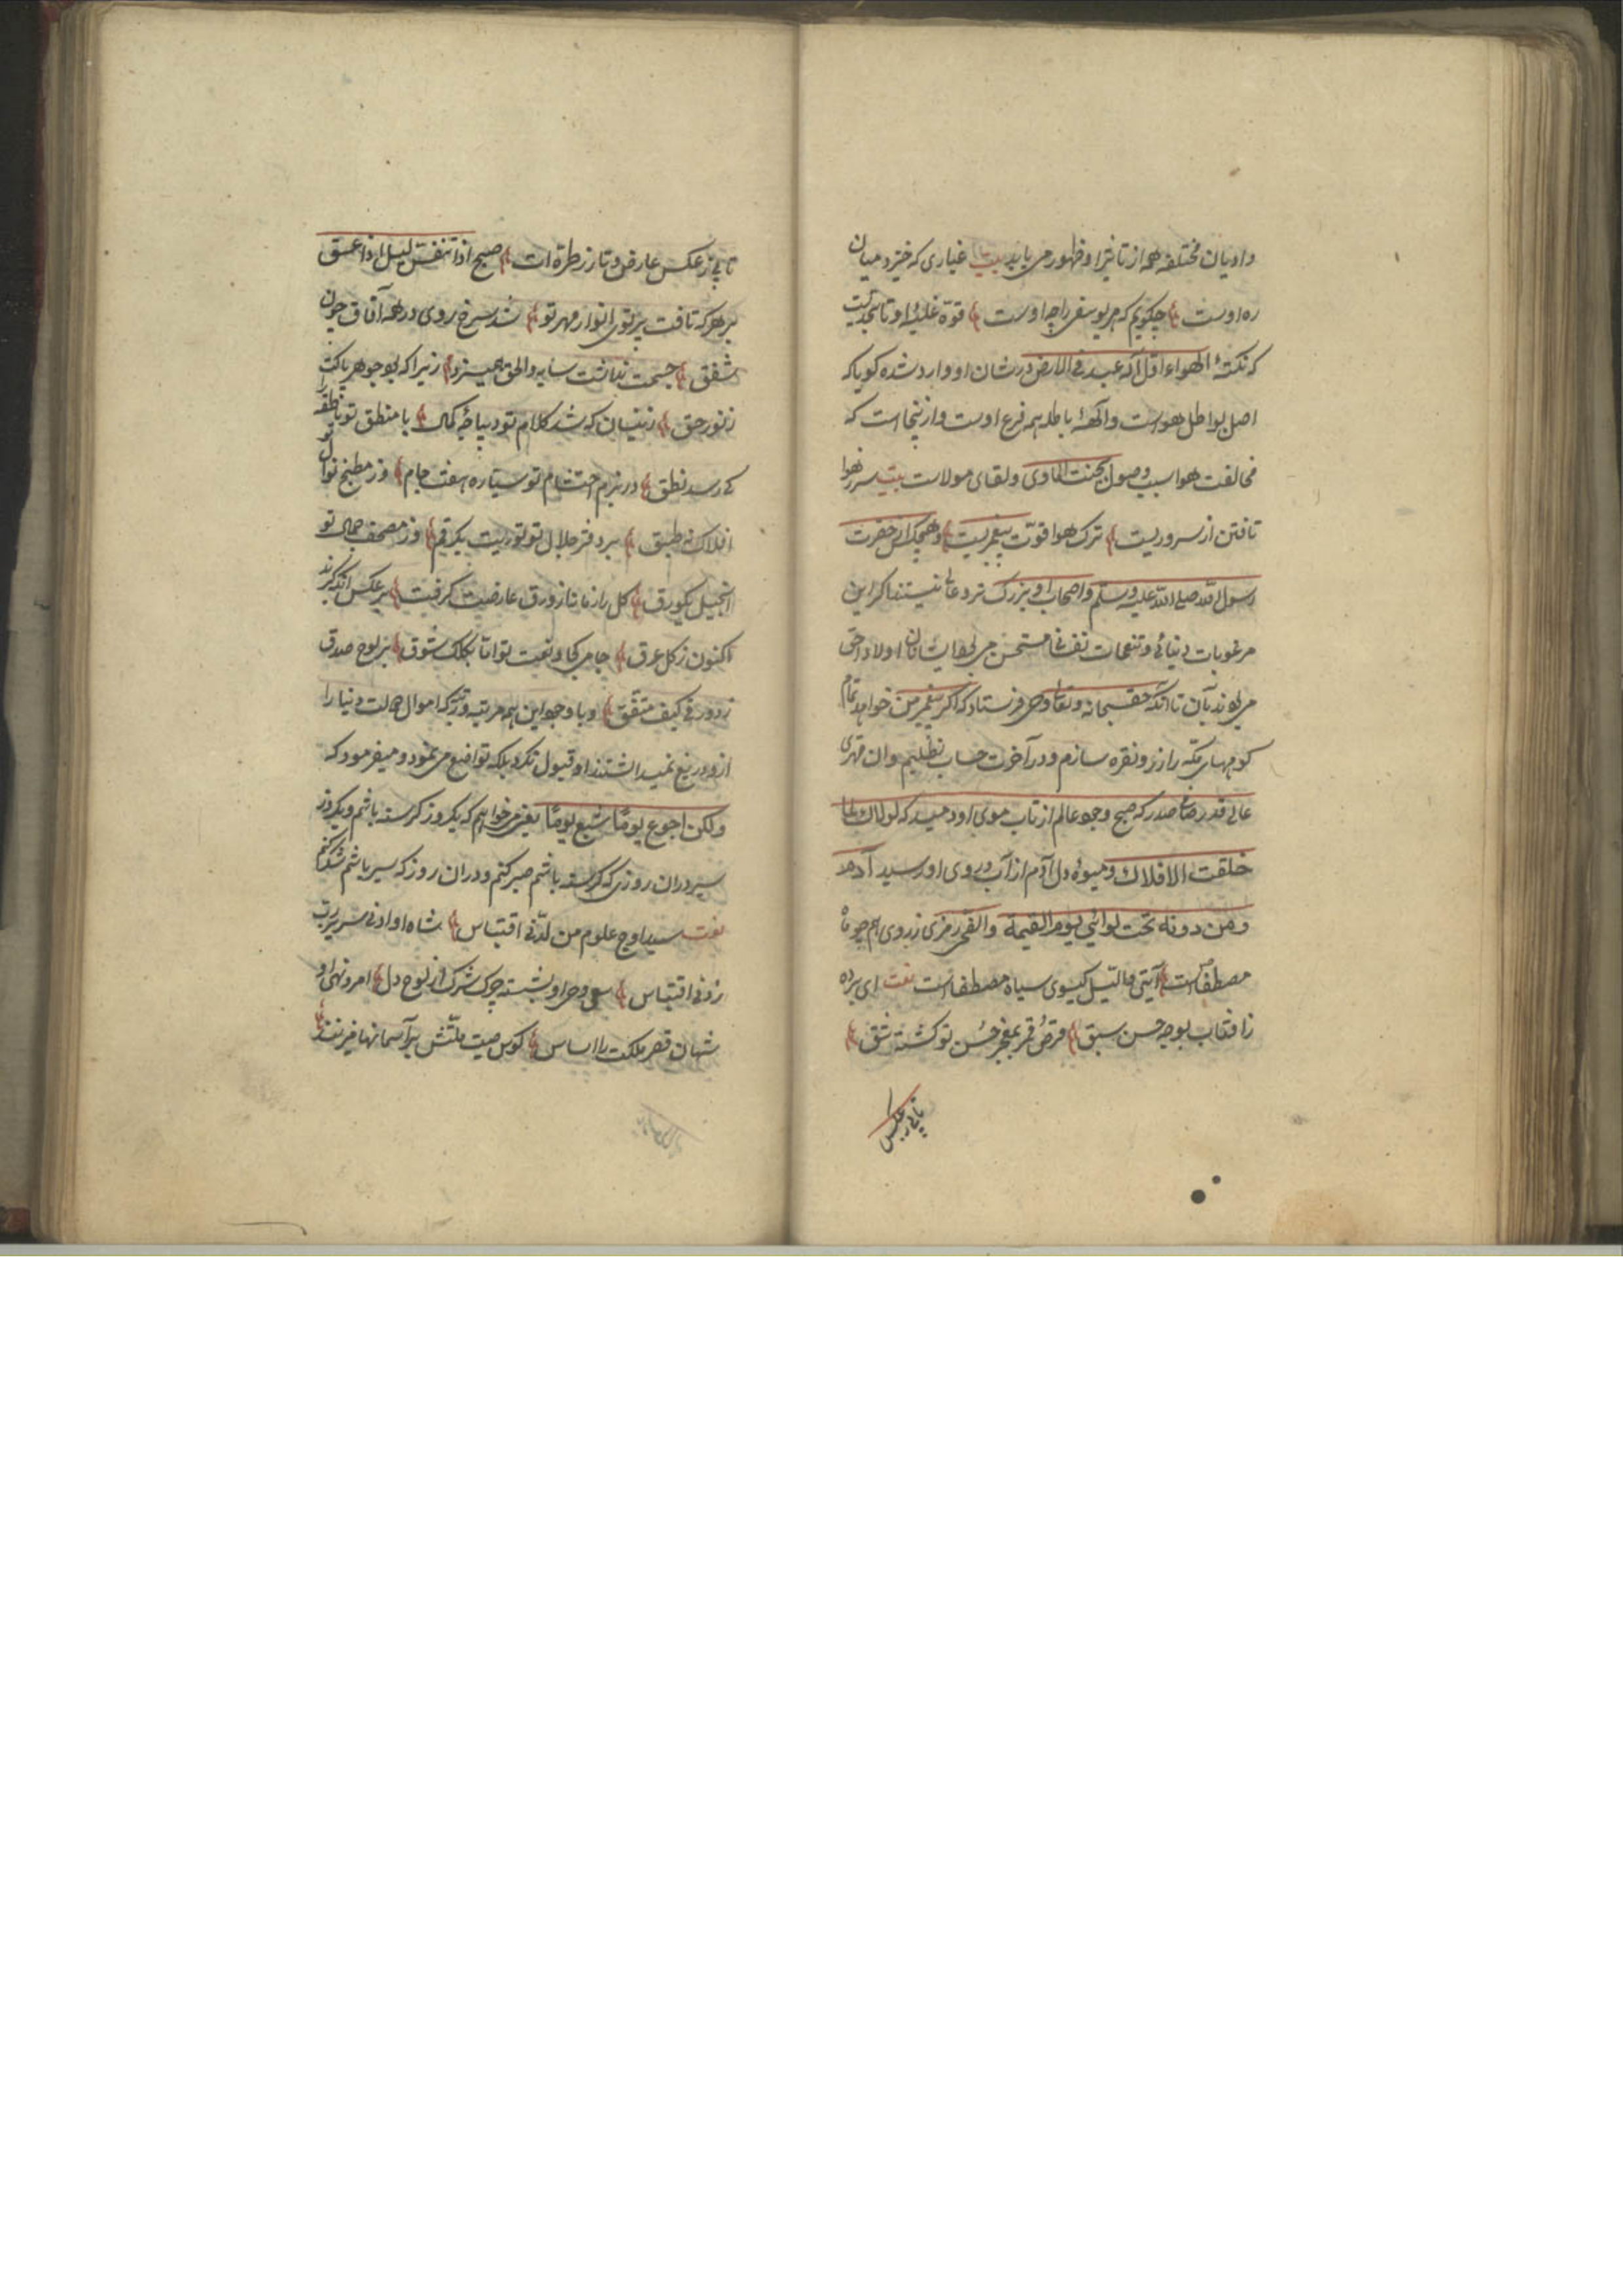 وادیان مختلفه همه از تاثیر او ظهور می یابد بیت غباری که خیزد میان
ره اوست چکویم که هر یوسفی را چه اوست قوّة غلبۀ او تا بحدّیست
که نکتۀ الهواء اوّل اله عبد فی الارض در شان او وارد شده کویا که
اصل بواطل هواست وآلهۀ باطله همه فرع اوست واز ینجا است که
مخالفت هوا سبب وصول بجنت المأوی ولقای مولاست بیت سر زهوا
تافتن از سروریست ترک هوا قوّت پیغمبریست وهیچکدام حضرت
رسول الله صلی الله علیه وسلم واصحاب او بزرک تر وعالی نیستند اکر این
مرغوبات دنیائی وتنعمات نفسانی مستحسن می بود ایشانان اولا واحق
می بودند بآن تا آنکه حق سبحانه وتعالی وحی فرستاد که اکر پیغمبر من خواهد تمام
کوههای مکه را زر ونقره سازم ودر آخرت حساب نطلبیم وان مهتری
عالی قدر صافی صدر که صبح وجود عالم از تاب موی او دمید که لولاك لما
خلقت الافلاك ومیوۀ دل آدم از آب روی او رسید آدم
ومن دونه تحت لوائی یوم القیمة والفجر رمزی ز روی هم چو ماه
مصطفاست آیتی واللیل کیسوی سیاه مصطفاست نعت ای برده
ز افتاب بوجه حسن سبق قرص قمر بمعجز حسن تو کشته شق
تابی ز عکس
تابی ز عکس عارض وتار ز طرۀ ات صبح اذا تنفس لیل اذا عسق
بر هر که تافت پرتوی انوار مهر تو شد سرخ روی در همه آفاق چون
شفق جسمت نداشت سایه والحق همیسزد زیرا که بود جوهر پاکت
ز نور حق زینسان که شد کلام تو دیباچۀ کمال با منطق تو ناطقه را
کی رسد نطق در بزم احتشام تو سیاره هفت جام وز مطبخ نوال تو
افلاک نه طبق بر دفتر جلال تو توریت یکرقم وز مصحف جمال تو
انجیل یکورق کل را ز ما تازه ورق عارضیت کرفت بر عکس آنکه کیرند
اکنون ز کل عرق جامی کجا ونعت تو اما بکلک شوق بر لوح صدق
زد ورقی کیف متفق وبا وجود این همه مرتبه ... که اموال ... دنیا را
ازو دریغ نمیداشتند او قبول نکرد بلکه تواضع می نمود ومیفرمود که
ولکن اجوع یومًا شبع یومًا یعنی میخواهم که یکروز کرسنه باشم ویکروز
سیر دران روزی که کرسنه باشم صبر کنم ودران روز که سیر باشم شکر کنم
نعت سید اوج علوم من لدنی اقتباس شاه او ادنی سریر رب
زدنی اقتباس سعی وحی او بشسته چرک شرک از لوح دل امر ونهی او
شهان قصر ملکت را اساس کوس صیت ملّتش بر آسمانها میزنند